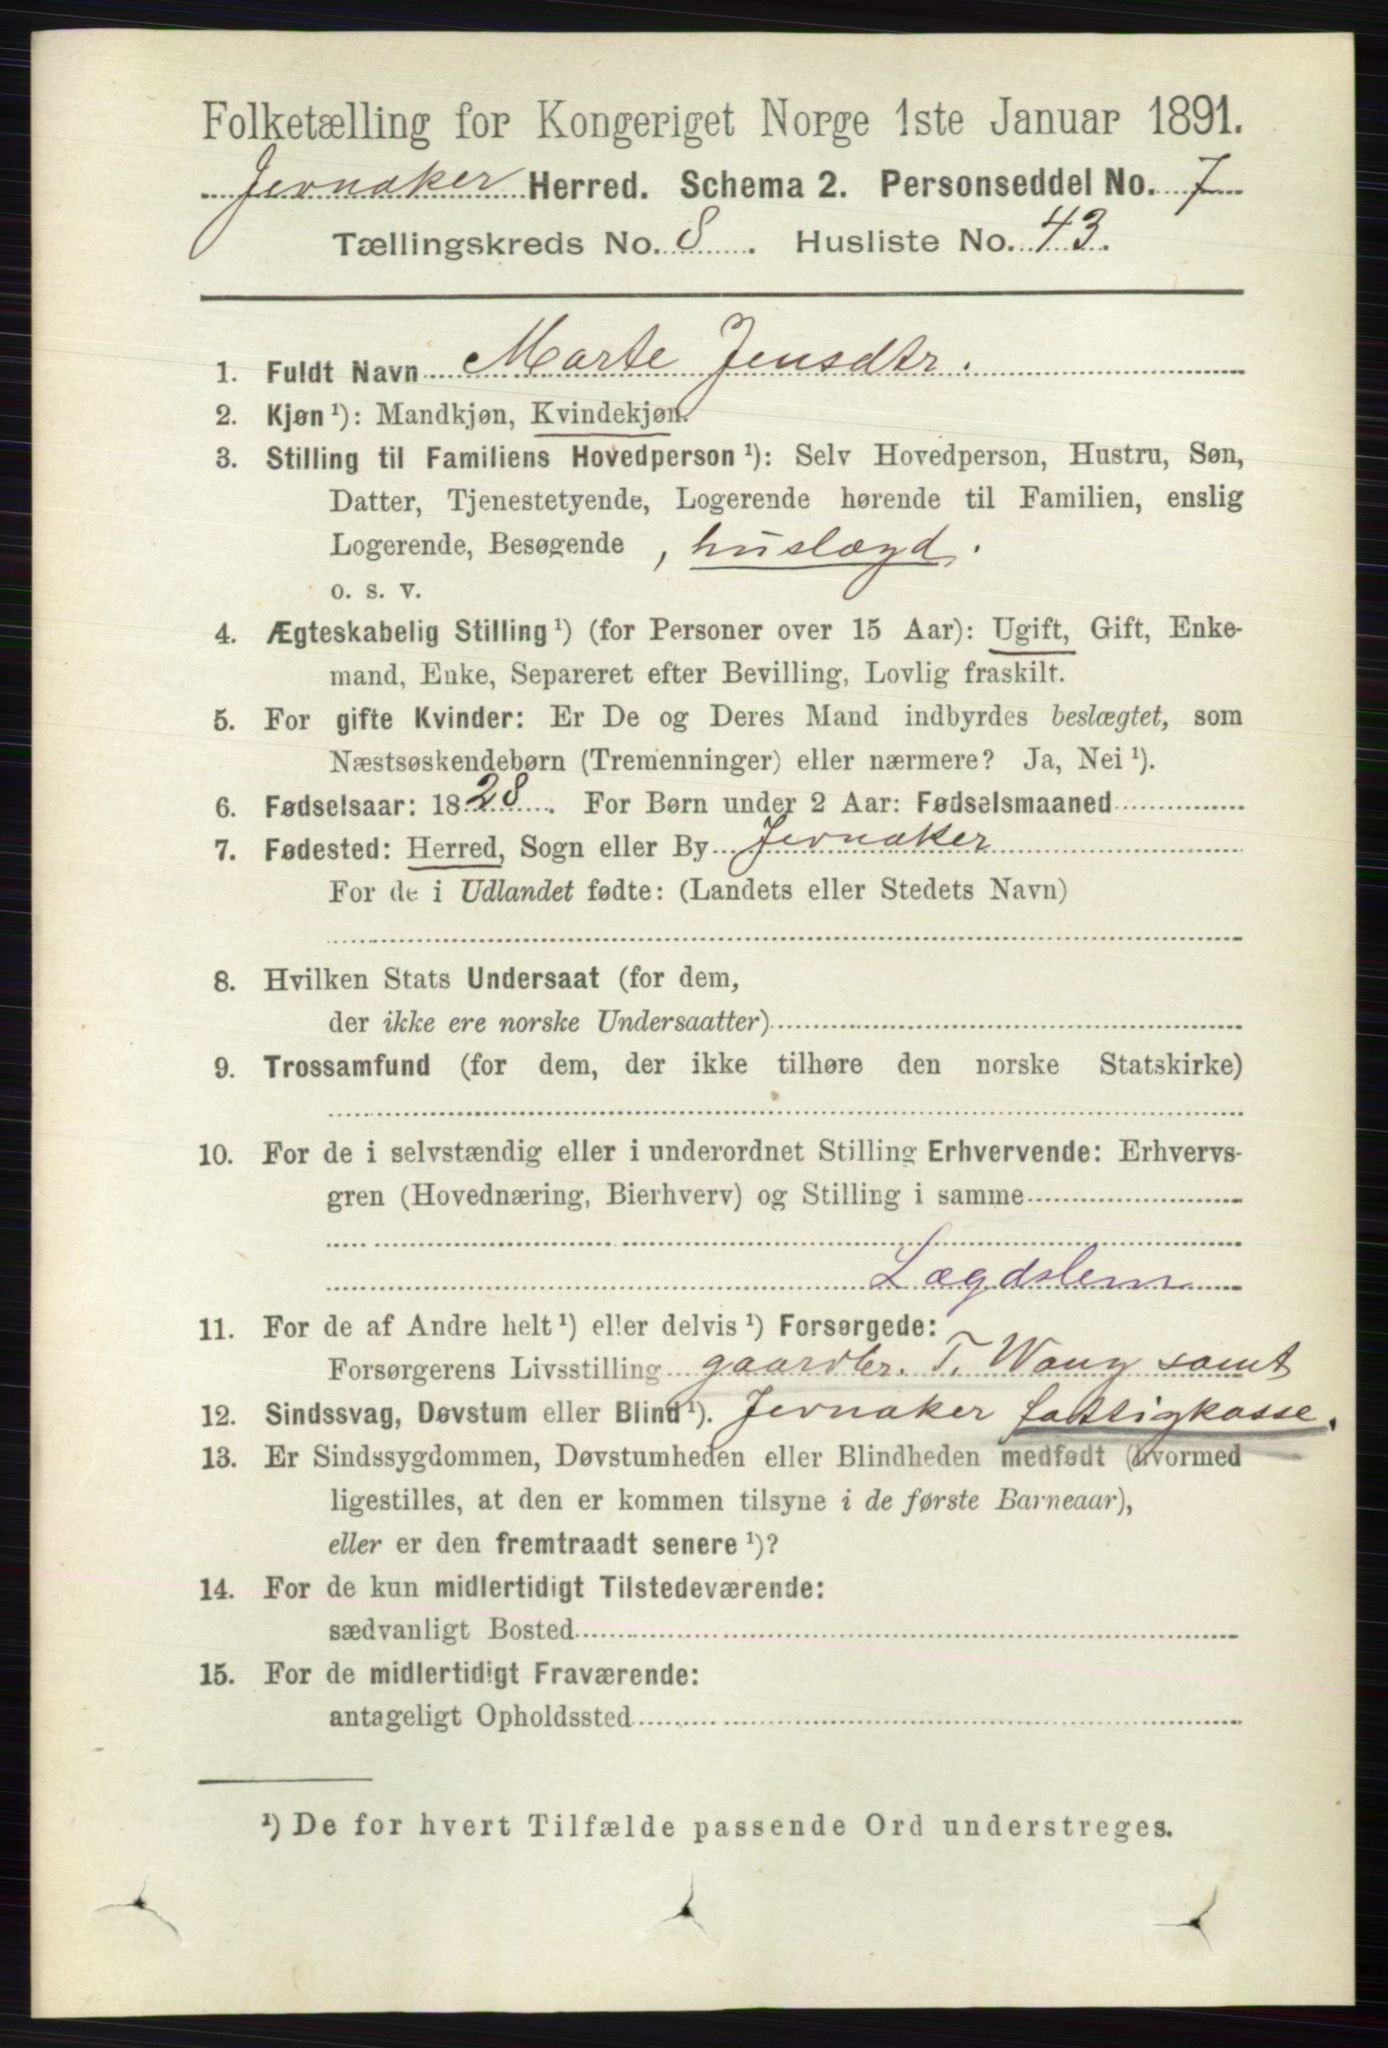 Folketælling for Kongeriget Norge 1ste Januar 1891.
Jevnaker Herred. Schema 2. Personseddel No. 7
Tællingskreds No. 8. Husliste No. 43.
1. Fuldt Navn Marte Jensdtr.
2. Kjøn ¹): Mandkjøn, Kvindekjøn.
3. Stilling til Familiens Hovedperson ¹): Selv Hovedperson, Hustru, Søn,
Datter, Tjenestetyende, Logerende hørende til Familien, enslig
Logerende, Besøgende, huslægd.
o. s. v.
4. Ægteskabelig Stilling ¹) (for Personer over 15 Aar): Ugift, Gift, Enke-
mand, Enke, Separeret efter Bevilling, Lovlig fraskilt.
5. For gifte Kvinder: Er De og Deres Mand indbyrdes beslægtet, som
Næstsøskendebørn (Tremenninger) eller nærmere? Ja, Nei ¹).
6. Fødselsaar: 1828. For Børn under 2 Aar: Fødselsmaaned
7. Fødested: Herred, Sogn eller By Jevnaker
For de i Udlandet fødte: (Landets eller Stedets Navn)
8. Hvilken Stats Undersaat (for dem,
der ikke ere norske Undersaatter)
9. Trossamfund (for dem, der ikke tilhøre den norske Statskirke)
10. For de i selvstændig eller i underordnet Stilling Erhvervende: Erhvervs-
gren (Hovednæring, Bierhverv) og Stilling i samme
Lægdslem
11. For de af Andre helt ¹) eller delvis ¹) Forsørgede:
Forsørgerens Livsstilling gaardbr. T. Wang samt
12. Sindssvag, Døvstum eller Blind ¹). Jevnaker fattigkasse.
13. Er Sindssygdommen, Døvstumheden eller Blindheden medfødt (hvormed
ligestilles, at den er kommen tilsyne i de første Barneaar),
eller er den fremtraadt senere ¹)?
14. For de kun midlertidigt Tilstedeværende:
sædvanligt Bosted
15. For de midlertidigt Fraværende:
antageligt Opholdssted
¹) De for hvert Tilfælde passende Ord understreges.